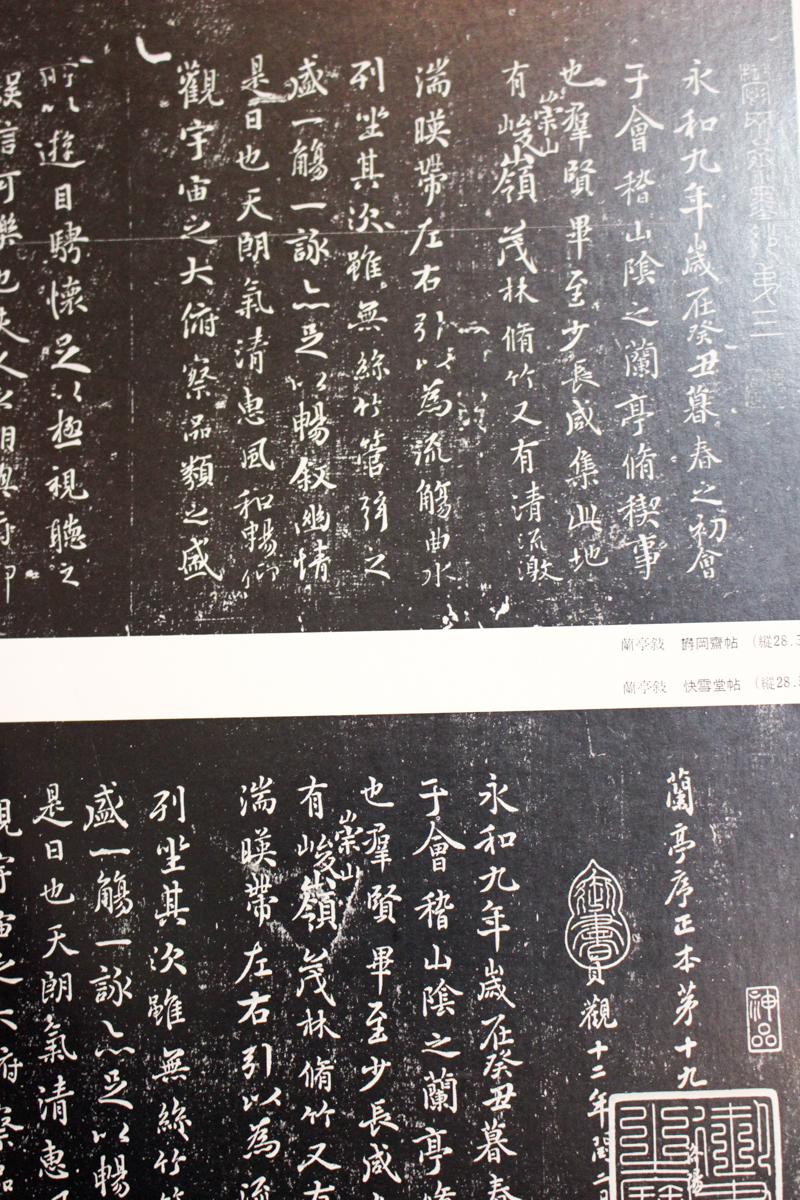 鬱岡齋墨妙弟三
永和九年歲在癸丑暮春之初會
于會稽山陰之蘭亭脩稧事
也羣賢畢至少長咸集此地
有崇山峻嶺茂林脩竹又有清流激
湍暎帶左右引以為流觴曲水
列坐其次雖無絲竹管弦之
盛一觴一詠亦足以暢敘幽情
是日也天朗氣清惠風和暢仰
觀宇宙之大俯察品類之盛
所以遊目騁懷足以極視聽之
娛信可樂也夫人之相與俯仰
蘭亭敍 鬱岡齋帖 (縱28.3
蘭亭敍 快雪堂帖 (縱28.
神品
蘭亭序正本苐十九 洛陽
御書
貞觀十二年閏二月
永和九年歲在癸丑暮春
于會稽山陰之蘭亭脩
也羣賢畢至少長咸
有崇山峻嶺茂林脩竹又有
湍暎帶左右引以為流
列坐其次雖無絲竹管
盛一觴一詠亦足以暢
是日也天朗氣清惠風
觀宇宙之大俯察品